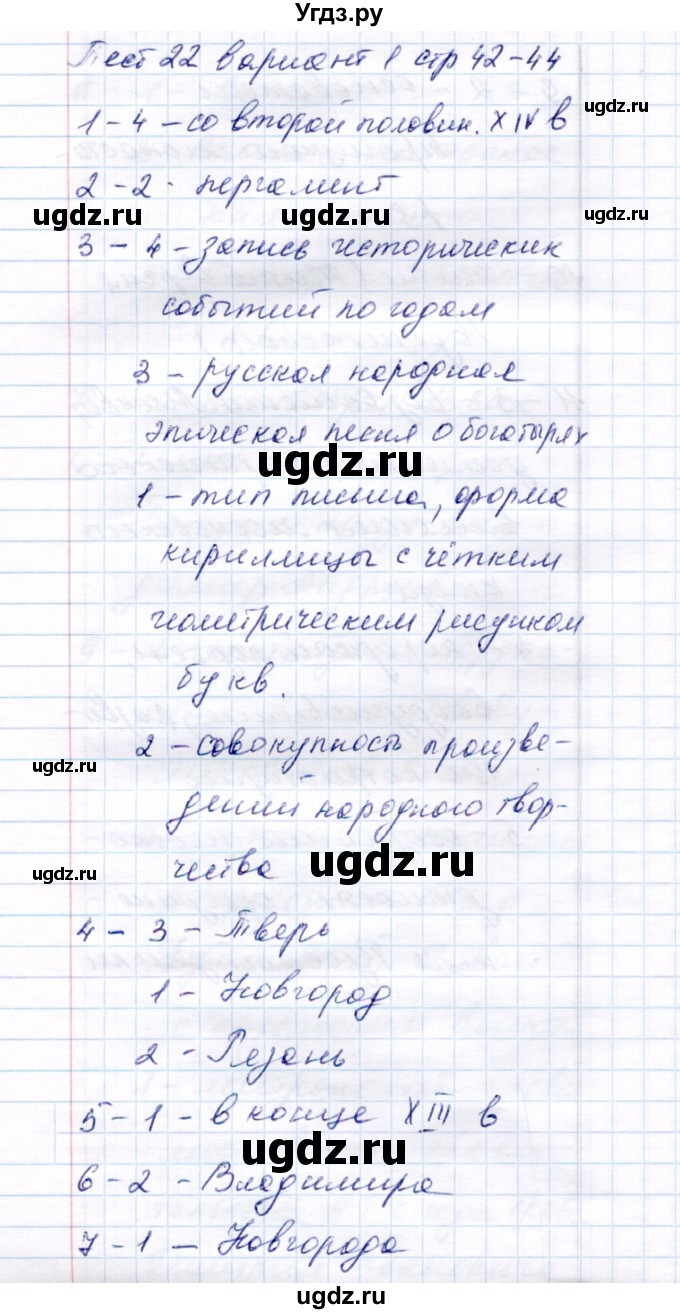 Угдз.ру
Тест 22 вариант 1 стр 42-44
1-4-со второй половин. XIV в
2-2- пергамент
ugdz.ru ugdz.ru
3-4-запись исторических
событий по годам
3-русская народная
эпическая песня о богатырях
ugdz.ru
1-тип письма, форма
кириллицы с чётким
геометрическим рисунком
букв.
2-совокупность произве-
ugdz.ru
дений народного твор-
чества ugdz.ru
ugdz.ru
4-3-Тверь
1-Новгород
2-Резань
ugdz.ru
5-1-в конце XIII в
6-2-Владимира
ugdz.ru ugdz.ru
7-1-Новгорода
ugdz.ru